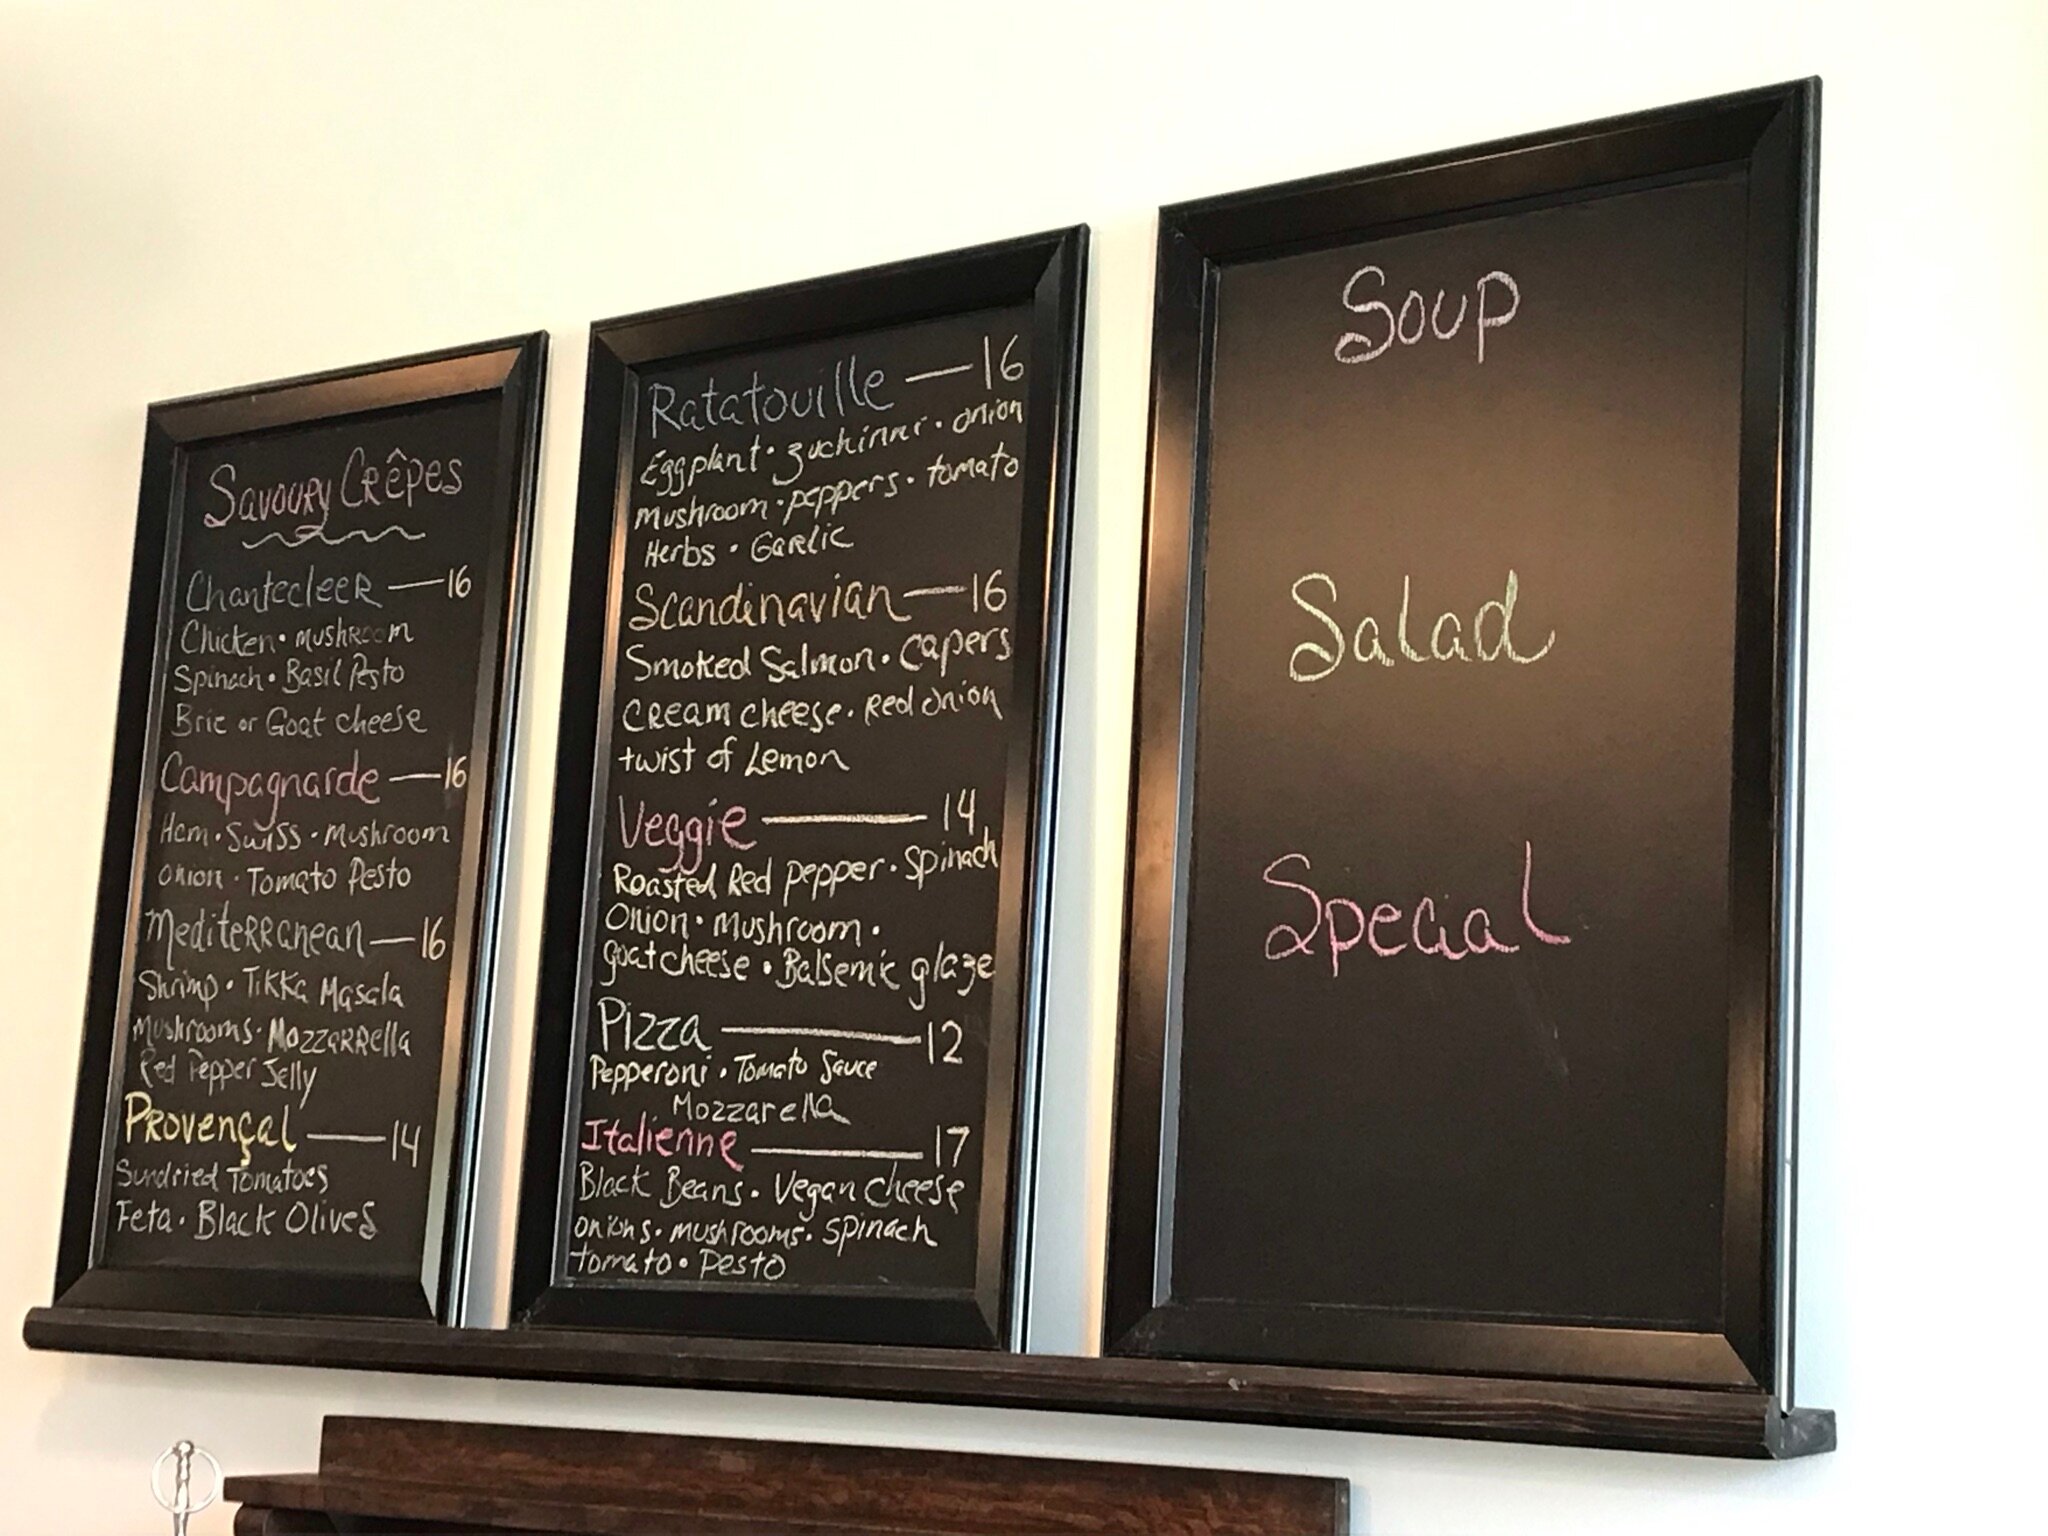 Savoury Crêpes
Chantecleer — 16
Chicken · mushroom
Spinach · Basil Pesto
Brie or Goat cheese
Campagnarde — 16
Ham · Swiss · mushroom
onion · Tomato Pesto
Mediterranean — 16
Shrimp · Tikka Masala
Mushrooms · Mozzarella
Red Pepper Jelly
Provençal — 14
Sundried Tomatoes
Feta · Black Olives
Ratatouille — 16
Eggplant · zuchinni · onion
mushroom · peppers · tomato
Herbs · Garlic
Scandinavian — 16
Smoked Salmon · Capers
Cream cheese · Red onion
twist of Lemon
Veggie — 14
Roasted Red pepper · Spinach
Onion · mushroom ·
goat cheese · Balsemic glaze
Pizza — 12
Pepperoni · Tomato Sauce
Mozzarella
Italienne — 17
Black Beans · Vegan cheese
onions · mushrooms · Spinach
tomato · Pesto
Soup
Salad
Special